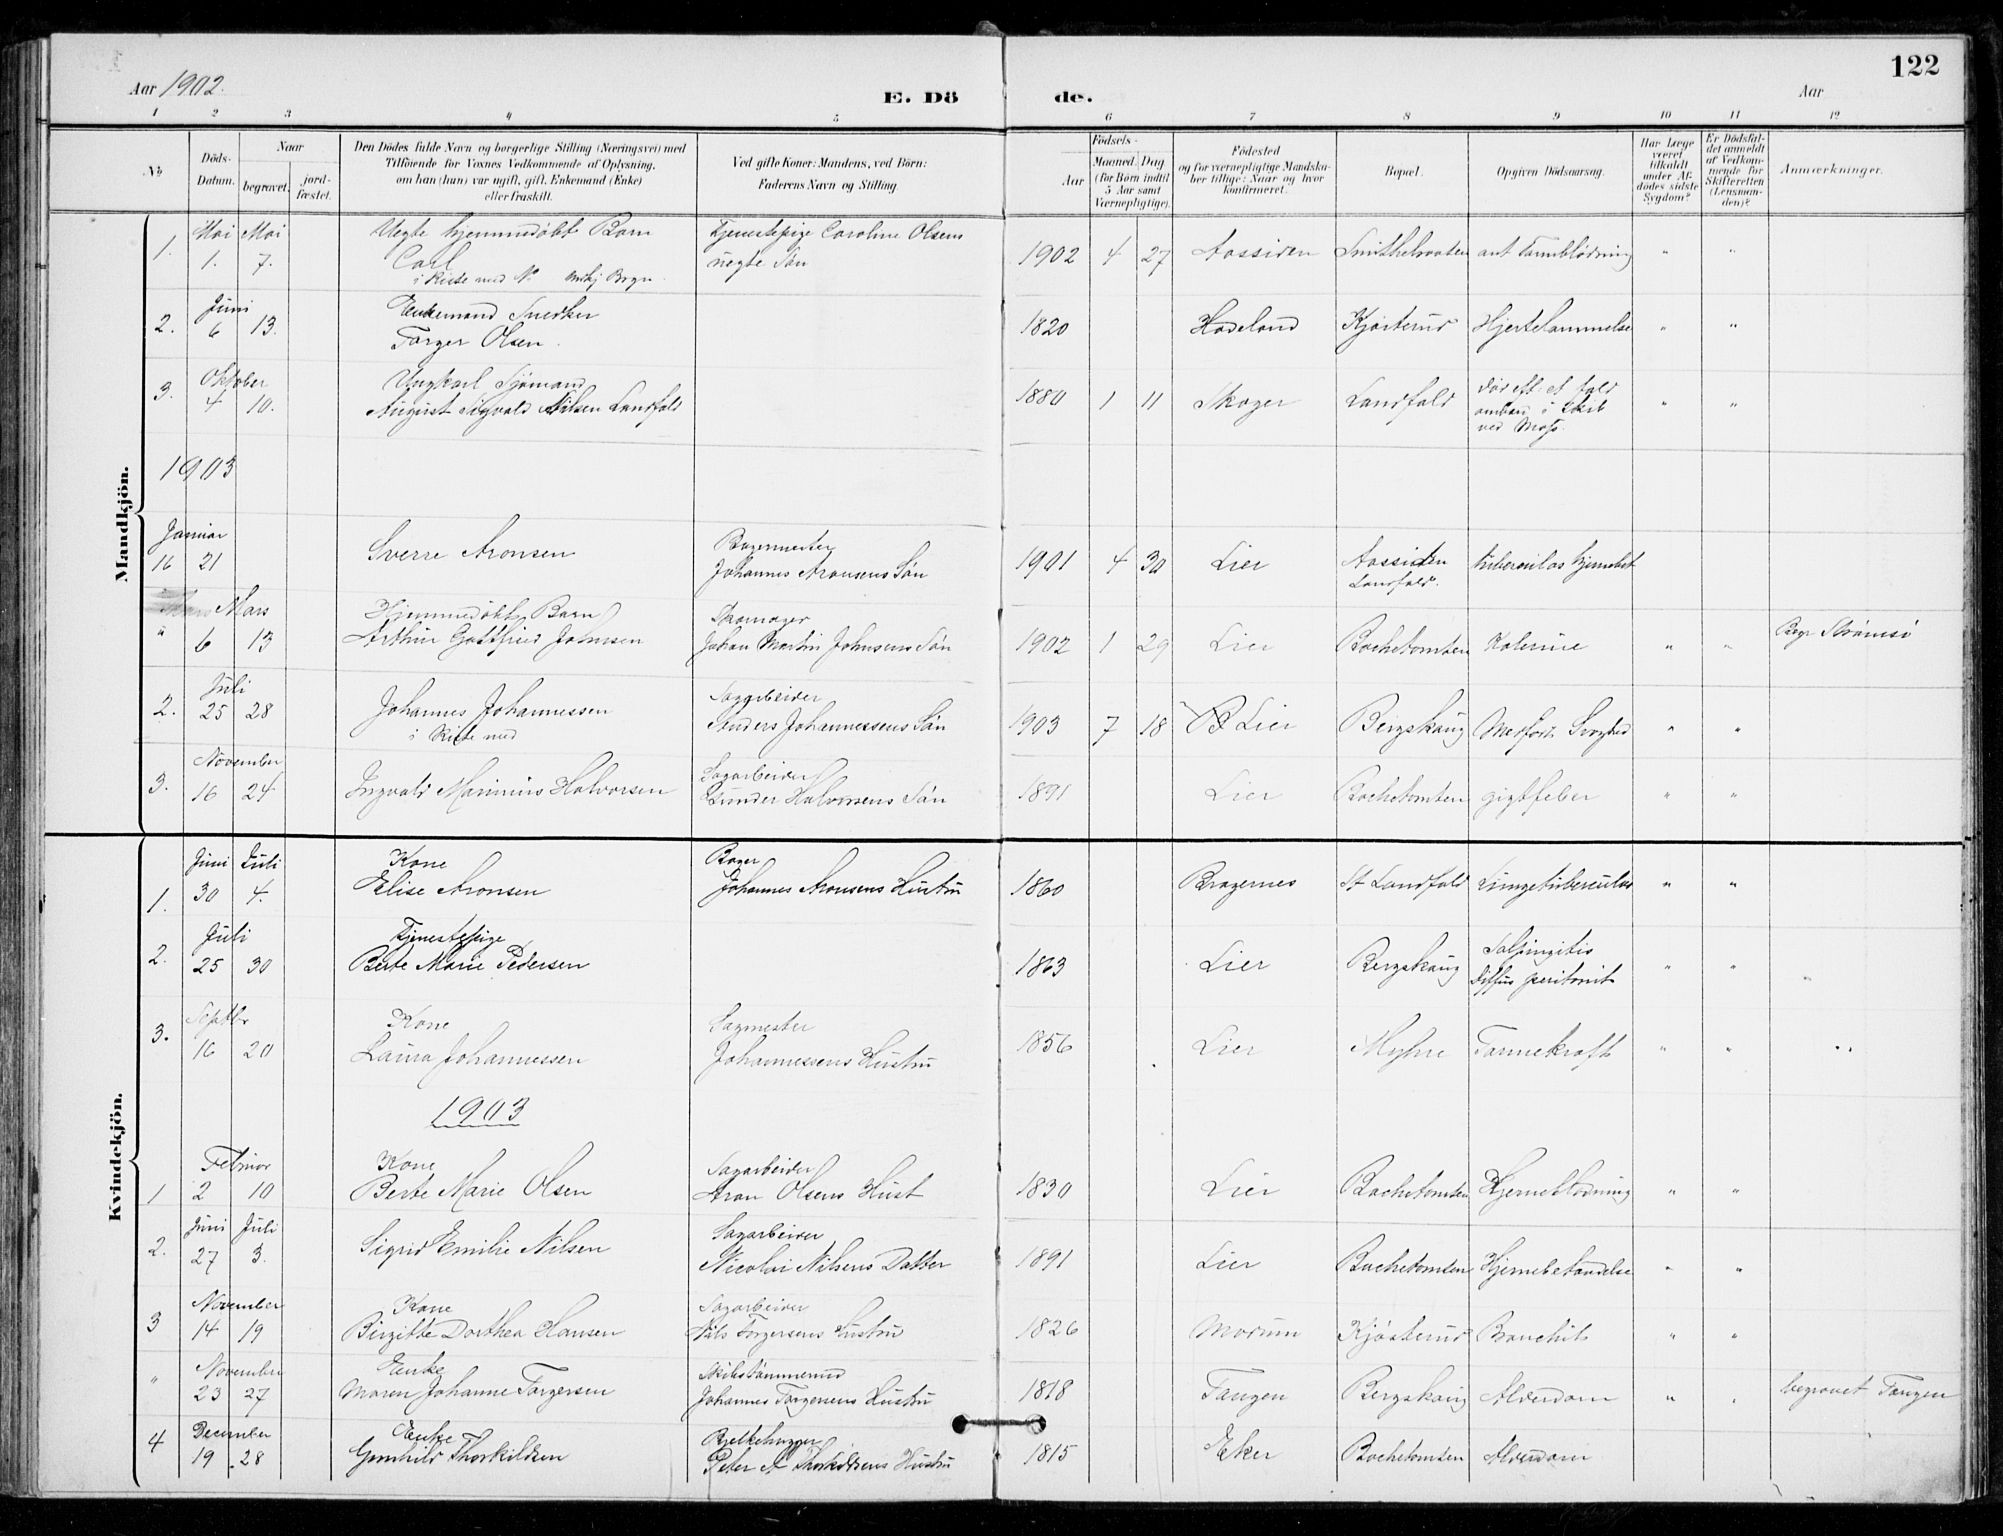 Aar 1902.
E. Dö de.
Aar
122
1 2 3 4 5 6 7 8 9 10 11 12
No
Döds-Datum.
Naar
begravet.
jord-fæstet.
Den Dödes fulde Navn og borgerlige Stilling (Næringsvei) med
Tilföiende for Voxnes Vedkommende af Oplysning,
om han (hun) var ugift, gift, Enkemand (Enke)
eller fraskilt.
Ved gifte Koner: Mandens, ved Börn:
Faderens Navn og Stilling.
Födsels-
Aar
Maaned. Dag
(for Börn indtil
5 Aar samt
Værnepligtige).
Födested
og for værnepligtige Mandska-
ber tillige: Naar og hvor
konfirmeret.
Bopæl.
Opgiven Dödsaarsag.
Har Læge
været
tilkaldt
under Af-
dödes sidste
Sygdom?
Er Dödsfal-
det anmeldt
af Vedkom-
mende for
Skifteretten
(Lensman-
den)?
Anmærkninger.
Mandkjön.
Mai Mai Uegte hjemmedøbt Barn Tjenestepige Caroline Olsens
1. 1. 7. Carl uegte Søn 1902 4 27 Aassiden ant Tarmblødning " "
i Kiste med No
Juni Enkemand Snedker
2. 6 13. Torger Olsen. 1820 Hadeland Kjøsterud Hjertelammelse " "
Oktober Ungkarl Sjømand
3. 4 10. August Sigvald Nilsen Landfald 1880 1 11 Skoger Landfald død eft. et fald
ombord i Skib
ved Moss. " "
1903
Januar Bagermester
16 21 Sverre Aronsen Johannes Aronsens Søn 1901 4 30 Lier Aassiden
Landfald.
Mars Hjemmedøbt Barn Skomager
" 6 13 Arthur Gottfried Johnsen Johan Martin Johnsens Søn 1902 1 29 Lier Bachetomten Kolerine " " Begr Strømsø
Juli Sagarbeider
2. 25 28 Johannes Johannessen Johannessens Søn 1903 7 18 Lier Bergskaug Medfødt Svaghed " "
i Kiste med
November Sagarbeider
3. 16 24 Ingvald Marinius Halvorsen Gunder Halvorsens Søn 1891 Lier Bachetomten gigtfeber " "
Kvindekjön.
Juni Juli Kone Bager
1. 30 4. Elise Aronsen Johannes Aronsens Hustru 1860 Bragernes St Landfald Lungetuberculos " "
Juli Tjenestepige
2. 25 30 Berte Marie Pedersen 1863 Lier Bergskaug Salpingitis
Diffus peritonit " "
Septbr Kone Sagmester
3. 16 20 Laura Johannessen Johannessens Hustru 1856 Lier Myhre Tarmekræft " "
1903
Februar Kone Sagarbeider
1 2 10 Berte Marie Olsen Aron Olsens Hust 1830 Lier Bachetomten Hjerneblødning " "
Juni Juli Sagarbeider
2. 27 3. Sigrid Emilie Nilsen Nicolai Nilsens Datter 1891 Lier Bachetomten Hjernebetændelse " "
November Kone Sagarbeider
3 14 19 Birgitte Dorthea Hansen Nils Torgersens Hustru 1826 Modum Kjøsterud Bronchit " "
November Enke Skibstømmermd
" 23 27 Maren Johanne Torgersen Johannes Torgersens Hustru 1818 Tangen Bergskaug Alderdom " " begravet Tangen
December Enke Bjelkehugger
4 19 28 Gunhild Thorkildsen Peter A Thorkildsens Hustru 1815 Eker Bachetomten Alderdom